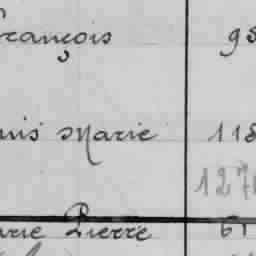 François 98
uis Marie 118
127
rie Pierre 61